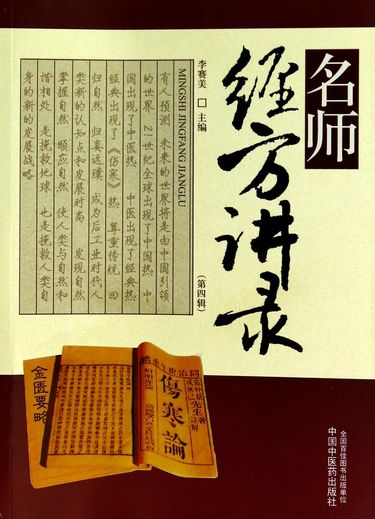 名师
经方讲录
(第四辑)
李赛美 主编
MINGSHI JINGFANG JIANGLU
有人预测 未来的世界将是由中国引领
的世界 21世纪全球出现了中国热 中
国出现了中医热 中医出现了经典热
经典出现了《伤寒》热 尊重传统 回
归自然 归真返璞 成为后工业时代人
类新的认知点和发展时尚 发现自然
掌握自然 顺应自然 使人类与自然和
谐相处 是挽救地球 也是挽救人类自
身的新的发展战略
傷寒論
金匱要略
全国百佳图书出版单位
中国中医药出版社